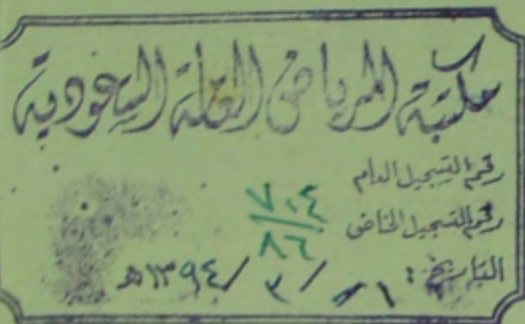 مكتبة الرياض العامة السعودية
رقم التسجيل العام
رقم التسجيل الخاص
٧٠٤
٨٦
التاريخ: / ٢ / ١٣٩٤هـ